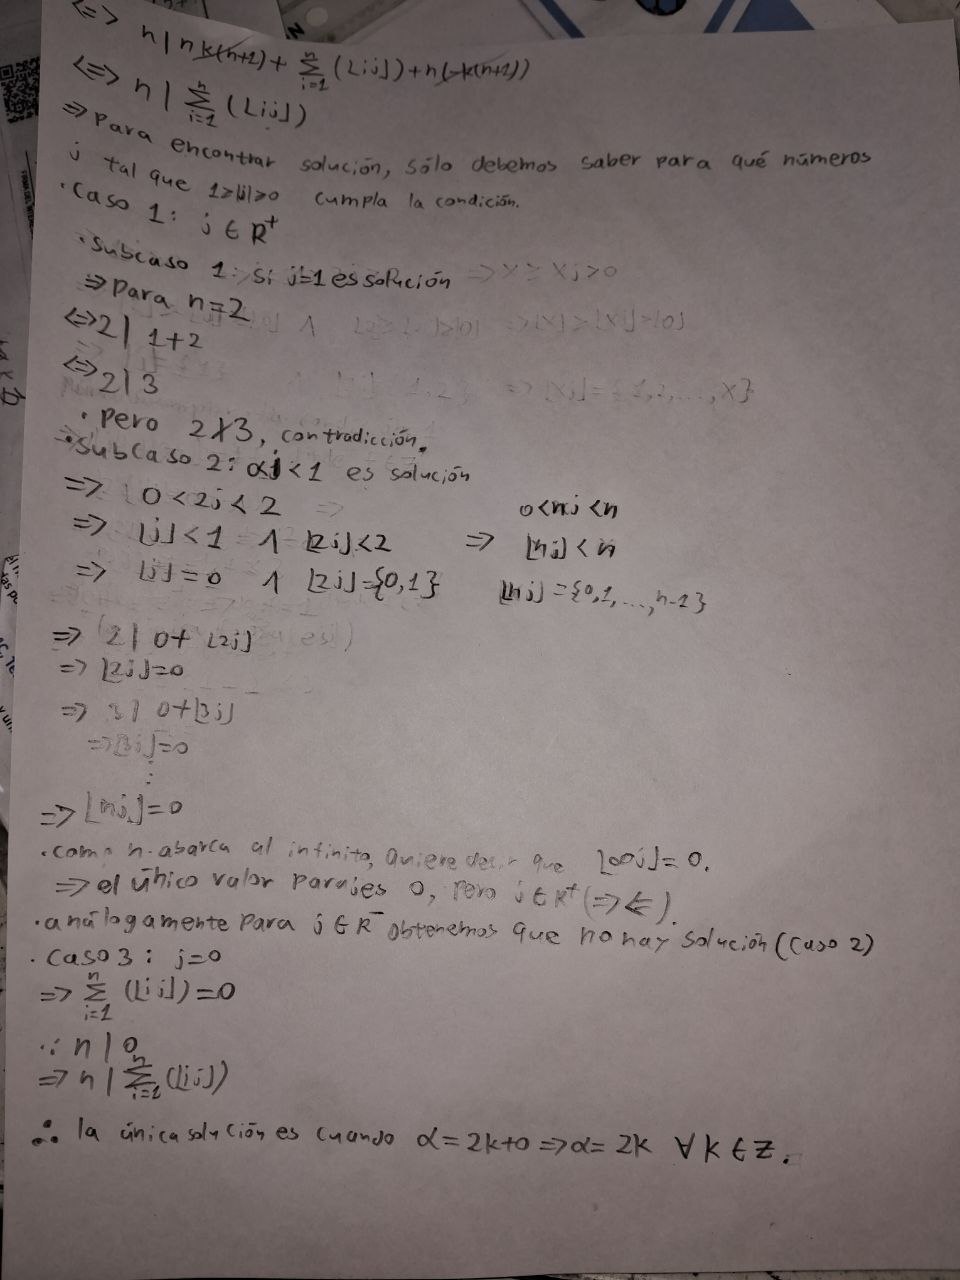 <=> n | n k(n+1) + n∑i=1 (⌊ij⌋) + n(-k(n+1))
<=> n | n∑i=1 (⌊ij⌋)
=> Para encontrar solución, sólo debemos saber para qué números
j tal que 1≥|j|≥0 cumpla la condición.
· Caso 1: j ∈ R⁺
· Subcaso 1: si j=1 es solución
=> Para n=2
<=> 2 | 1+2
<=> 2 | 3
· Pero 2∤3, contradicción.
· Subcaso 2: 0<j<1 es solución
=> 0<2j<2 0<nj<n
=> ⌊j⌋<1 ∧ ⌊2j⌋<2 => ⌊nj⌋<n
=> ⌊j⌋=0 ∧ ⌊2j⌋={0,1} ⌊nj⌋={0,1,...,n-1}
=> 2 | 0+⌊2j⌋
=> ⌊2j⌋=0
=> 3 | 0+⌊3j⌋
=> ⌊3j⌋=0
⋮
=> ⌊nj⌋=0
· como n abarca al infinito, quiere decir que ⌊∞j⌋=0.
=> el único valor para j es 0, pero j∈R⁺ (=><=).
· análogamente para j∈R⁻ obtenemos que no hay solución (Caso 2)
· Caso 3: j=0
=> n∑i=1 (⌊ij⌋)=0
∴ n | 0
=> n | n∑i=1 (⌊ij⌋)
∴ la única solución es cuando α=2k+0 => α=2k ∀k∈Z.